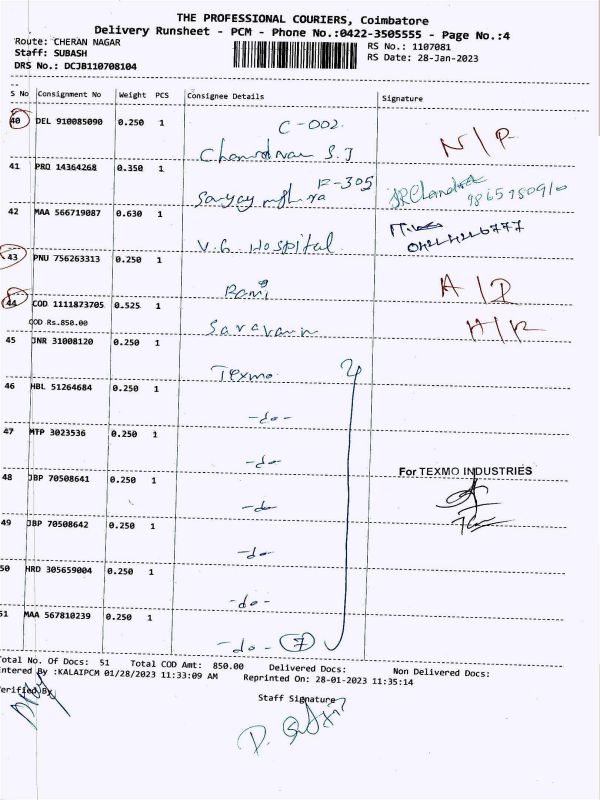 THE PROFESSIONAL COURIERS, Coimbatore
Delivery Runsheet - PCM - Phone No.:0422-3505555 - Page No.:4
Route: CHERAN NAGAR
RS No.: 1107081
Staff: SUBASH
RS Date: 28-Jan-2023
DRS No.: DCJB110708104
S No Consignment No Weight PCS Consignee Details Signature
40 DEL 910085090 0.250 1 C-002.
N/R
41 PRQ 14364268 0.350 1
F-305
42 MAA 566719087 0.630 1
V.G. Hospital
0424226777
43 PNU 756263313 0.250 1
Rani
A/D
44 COD 1111873705 0.525 1
COD Rs.850.00
Saravann
A/R
45 JNR 31008120 0.250 1
Texmo
46 HBL 51264684 0.250 1
-do-
47 MTP 3023536 0.250 1
-do-
For TEXMO INDUSTRIES
48 JBP 70508641 0.250 1
-do-
49 JBP 70508642 0.250 1
-do-
50 HRD 305659004 0.250 1
-do-
51 MAA 567810239 0.250 1
-do- 7
Total No. Of Docs: 51 Total COD Amt: 850.00 Delivered Docs: Non Delivered Docs:
Entered By :KALAIPCM 01/28/2023 11:33:09 AM Reprinted On: 28-01-2023 11:35:14
Verified By
Staff Signature